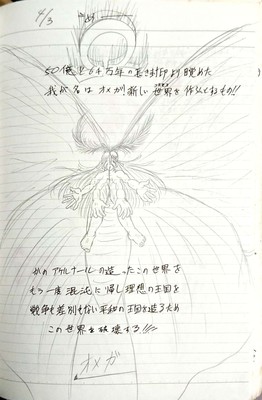 4/3
50億と64万年の長き封印より覚めた
我が名はオメガ!新しい世界を作りしもの!!
かのアケルナールの造ったこの世界を
もう一度混沌に帰し理想の王国を
戦争も差別もない平和の王国を造るため
この世界を破壊する!!
オメガ